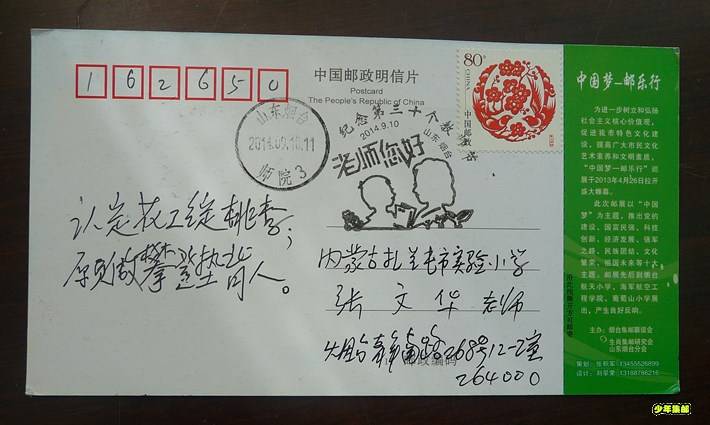 162650
中国邮政明信片
Postcard
The People's Republic of China
80分
CHINA
中国邮政
山东烟台
2014.09.10.11
师院3
纪念第三十个教师节
2014.9.10
山东 烟台
老师您好
认定花工绽桃李；
愿做攀登垫背人。
内蒙古扎兰屯市实验小学
张文华 老师
268号12-2室
邮政编码
264000
中国梦—邮乐行
为进一步树立和弘扬
社会主义核心价值观，
促进我市特色文化建
设，提高广大市民文化
艺术素养和文明素质，
“中国梦—邮乐行”邮
展于2013年4月26日拉开
盛大帷幕。
此次邮展以“中国
梦”为主题，推出党的
建设、国富民强、科技
创新、经济发展、强军
之路、民族团结、文化
繁荣、祖国未来等十大
主题。邮展先后到烟台
航天小学、海军航空工
程学院、葡萄山小学展
出，产生良好反响。
主办：烟台集邮联谊会
生肖集邮研究会
山东烟台分会
策划：张积军 13455526899
设计：刘爱荣 13188786216
少年集邮